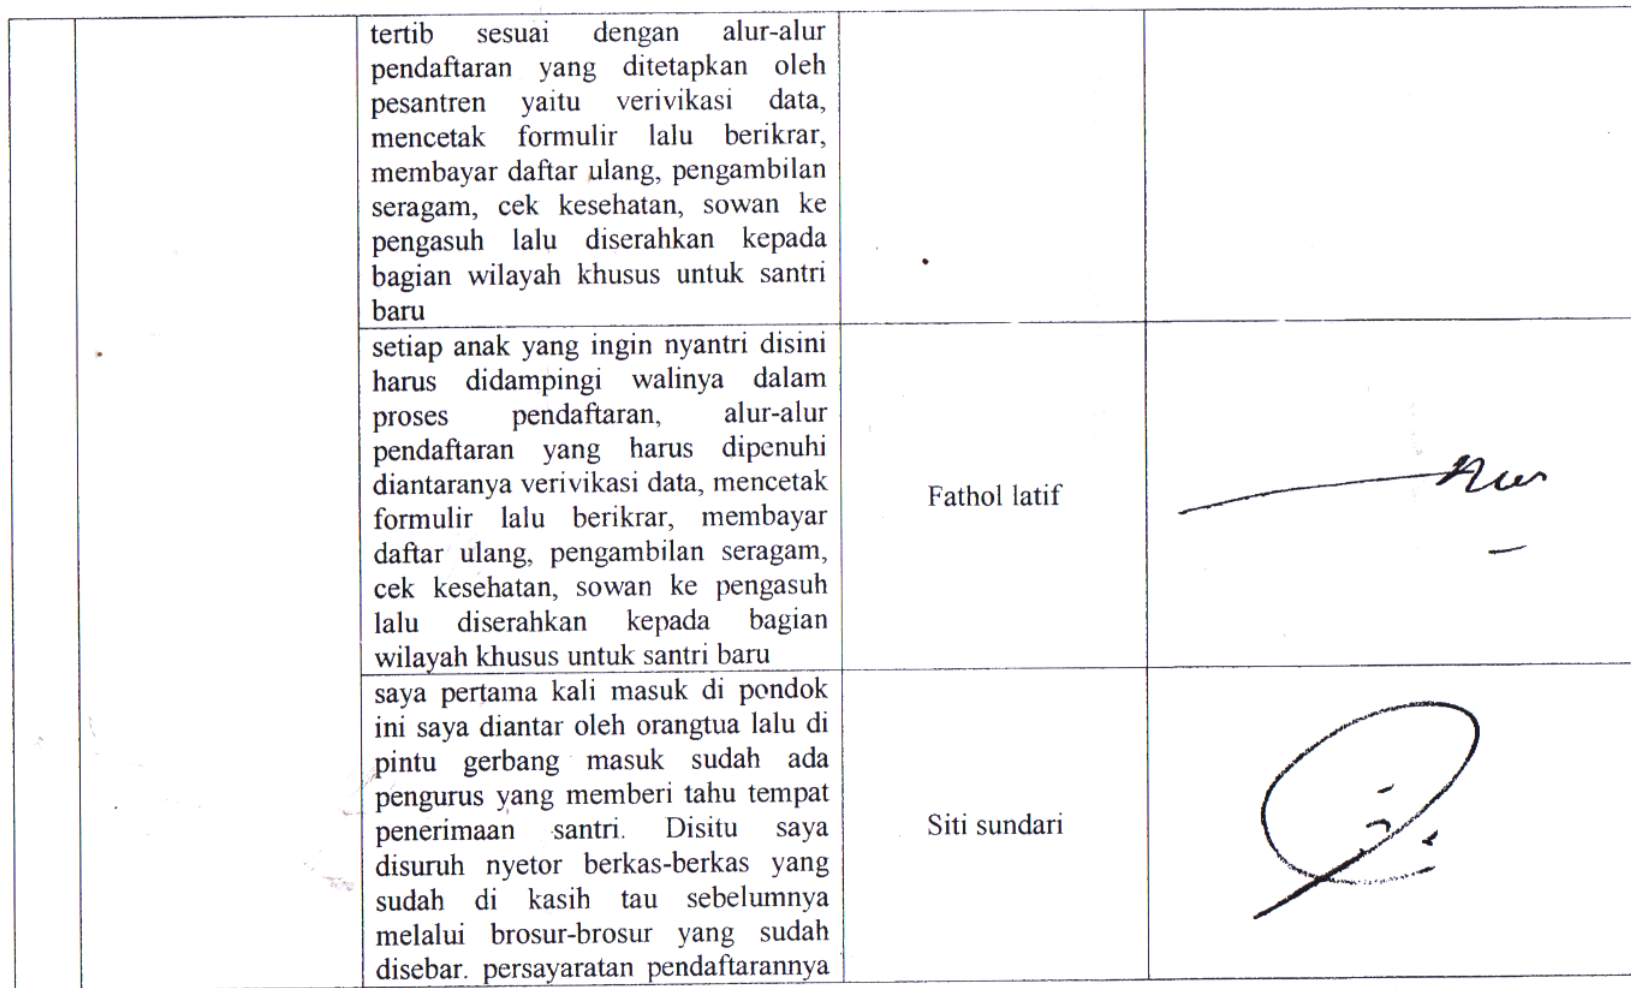 tertib sesuai dengan alur-alur
pendaftaran yang ditetapkan oleh
pesantren yaitu verivikasi data,
mencetak formulir lalu berikrar,
membayar daftar ulang, pengambilan
seragam, cek kesehatan, sowan ke
pengasuh lalu diserahkan kepada
bagian wilayah khusus untuk santri
baru
setiap anak yang ingin nyantri disini
harus didampingi walinya dalam
proses pendaftaran, alur-alur
pendaftaran yang harus dipenuhi
diantaranya verivikasi data, mencetak
formulir lalu berikrar, membayar
daftar ulang, pengambilan seragam,
cek kesehatan, sowan ke pengasuh
lalu diserahkan kepada bagian
wilayah khusus untuk santri baru
Fathol latif
saya pertama kali masuk di pondok
ini saya diantar oleh orangtua lalu di
pintu gerbang masuk sudah ada
pengurus yang memberi tahu tempat
penerimaan santri. Disitu saya
disuruh nyetor berkas-berkas yang
sudah di kasih tau sebelumnya
melalui brosur-brosur yang sudah
disebar. persayaratan pendaftarannya
Siti sundari